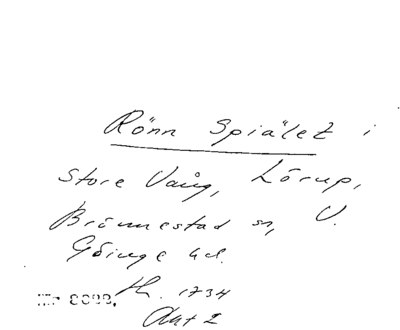 Rönn Spiälet i
Store Vång, Lörup,
Brönnestad sn, V.
Göinge hd.
th. 1734
Akt 2